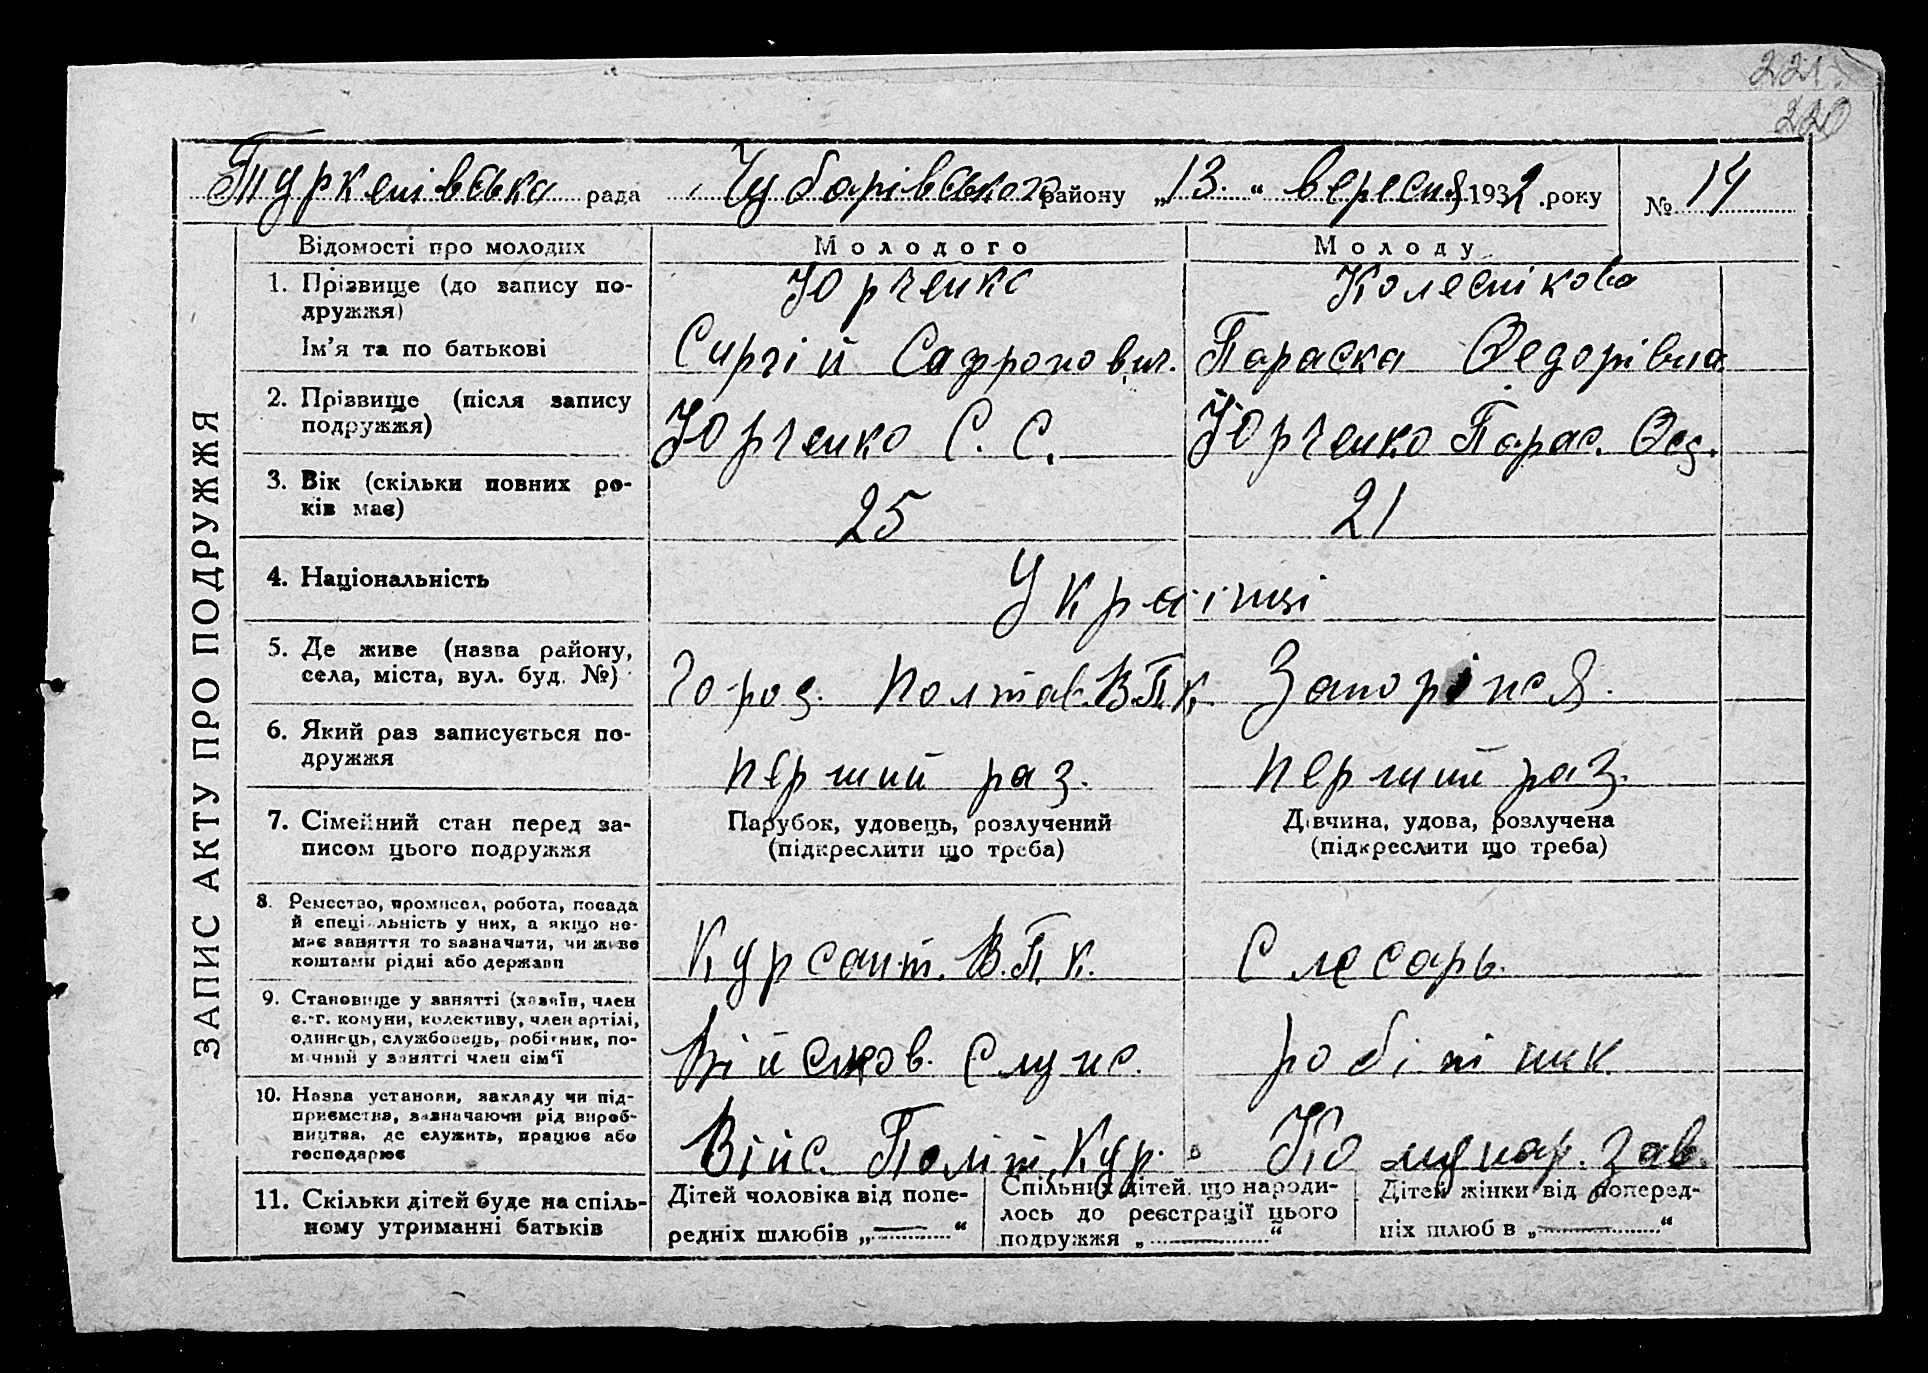 221.
220
Туркенівська рада Чубарівського району „13.“ вересня 1932 року № 14
ЗАПИС АКТУ ПРО ПОДРУЖЖЯ
Відомості про молодих
Молодого
Молоду
1. Прізвище (до запису по-
дружжя)
Юрченко
Колеснікова
Ім'я та по батькові
Сиргій Сафронович.
Параска Федорівна
2. Прізвище (після запису
подружжя)
Юрченко С. С.
Юрченко Парас. Фед.
3. Вік (скільки повних ро-
ків має)
25
21
4. Національність
Українці
5. Де живе (назва району,
села, міста, вул. буд. №)
Город. Полтав. В.П.К.
Запоріжся.
6. Який раз записується по-
дружжя
перший раз.
перший раз.
7. Сімейний стан перед за-
писом цього подружжя
Парубок, удовець, розлучений
(підкреслити що треба)
Дівчина, удова, розлучена
(підкреслити що треба)
8. Ремество, промисел, робота, посада
й спеціальність у них, а якщо не-
має заняття то зазначити, чи живе
коштами рідні або держави
Курсант. В.П.К.
Слесарь.
9. Становище у занятті (хазяїн, член
с.-г. комуни, колективу, член артілі,
одинець, службовець, робітник, по-
мічний у занятті член сім'ї
Військов. служ.
робітник.
10. Назва установи, закладу чи під-
приємства, зазначаючи рід вироб-
ництва, де служить, працює або
господарює
Війс. Політ. Кур.
Комунар. зав.
11. Скільки дітей буде на спіль-
ному утриманні батьків
Дітей чоловіка від попе-
редніх шлюбів „—“
Спільних дітей, що народи-
лось до реєстрації цього
подружжя „—“
Дітей жінки від поперед-
ніх шлюбів „—“